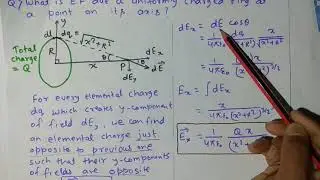 Q7 What is EF due a uniformly charged ring at
a point on its axis?
y
dl
dq
√x²+R²
R
Total
charge = Q
x
P
dEx
dEy
dE
For every elemental charge
dq which creates y-component
of field dEy, we can
an elemental charge just
opposite to previous one
such that their y-components
of fields are opposite
dEx = dE cosθ
= 1/4πε₀ dq/(x²+R²) x/√x²+R²
dEx = 1/4πε₀ x dq/(x²+R²)^3/2
Ex = ∫ dEx
= 1/4πε₀ x/(x²+R²)^3/2
Ex = 1/4πε₀ Qx/(x²